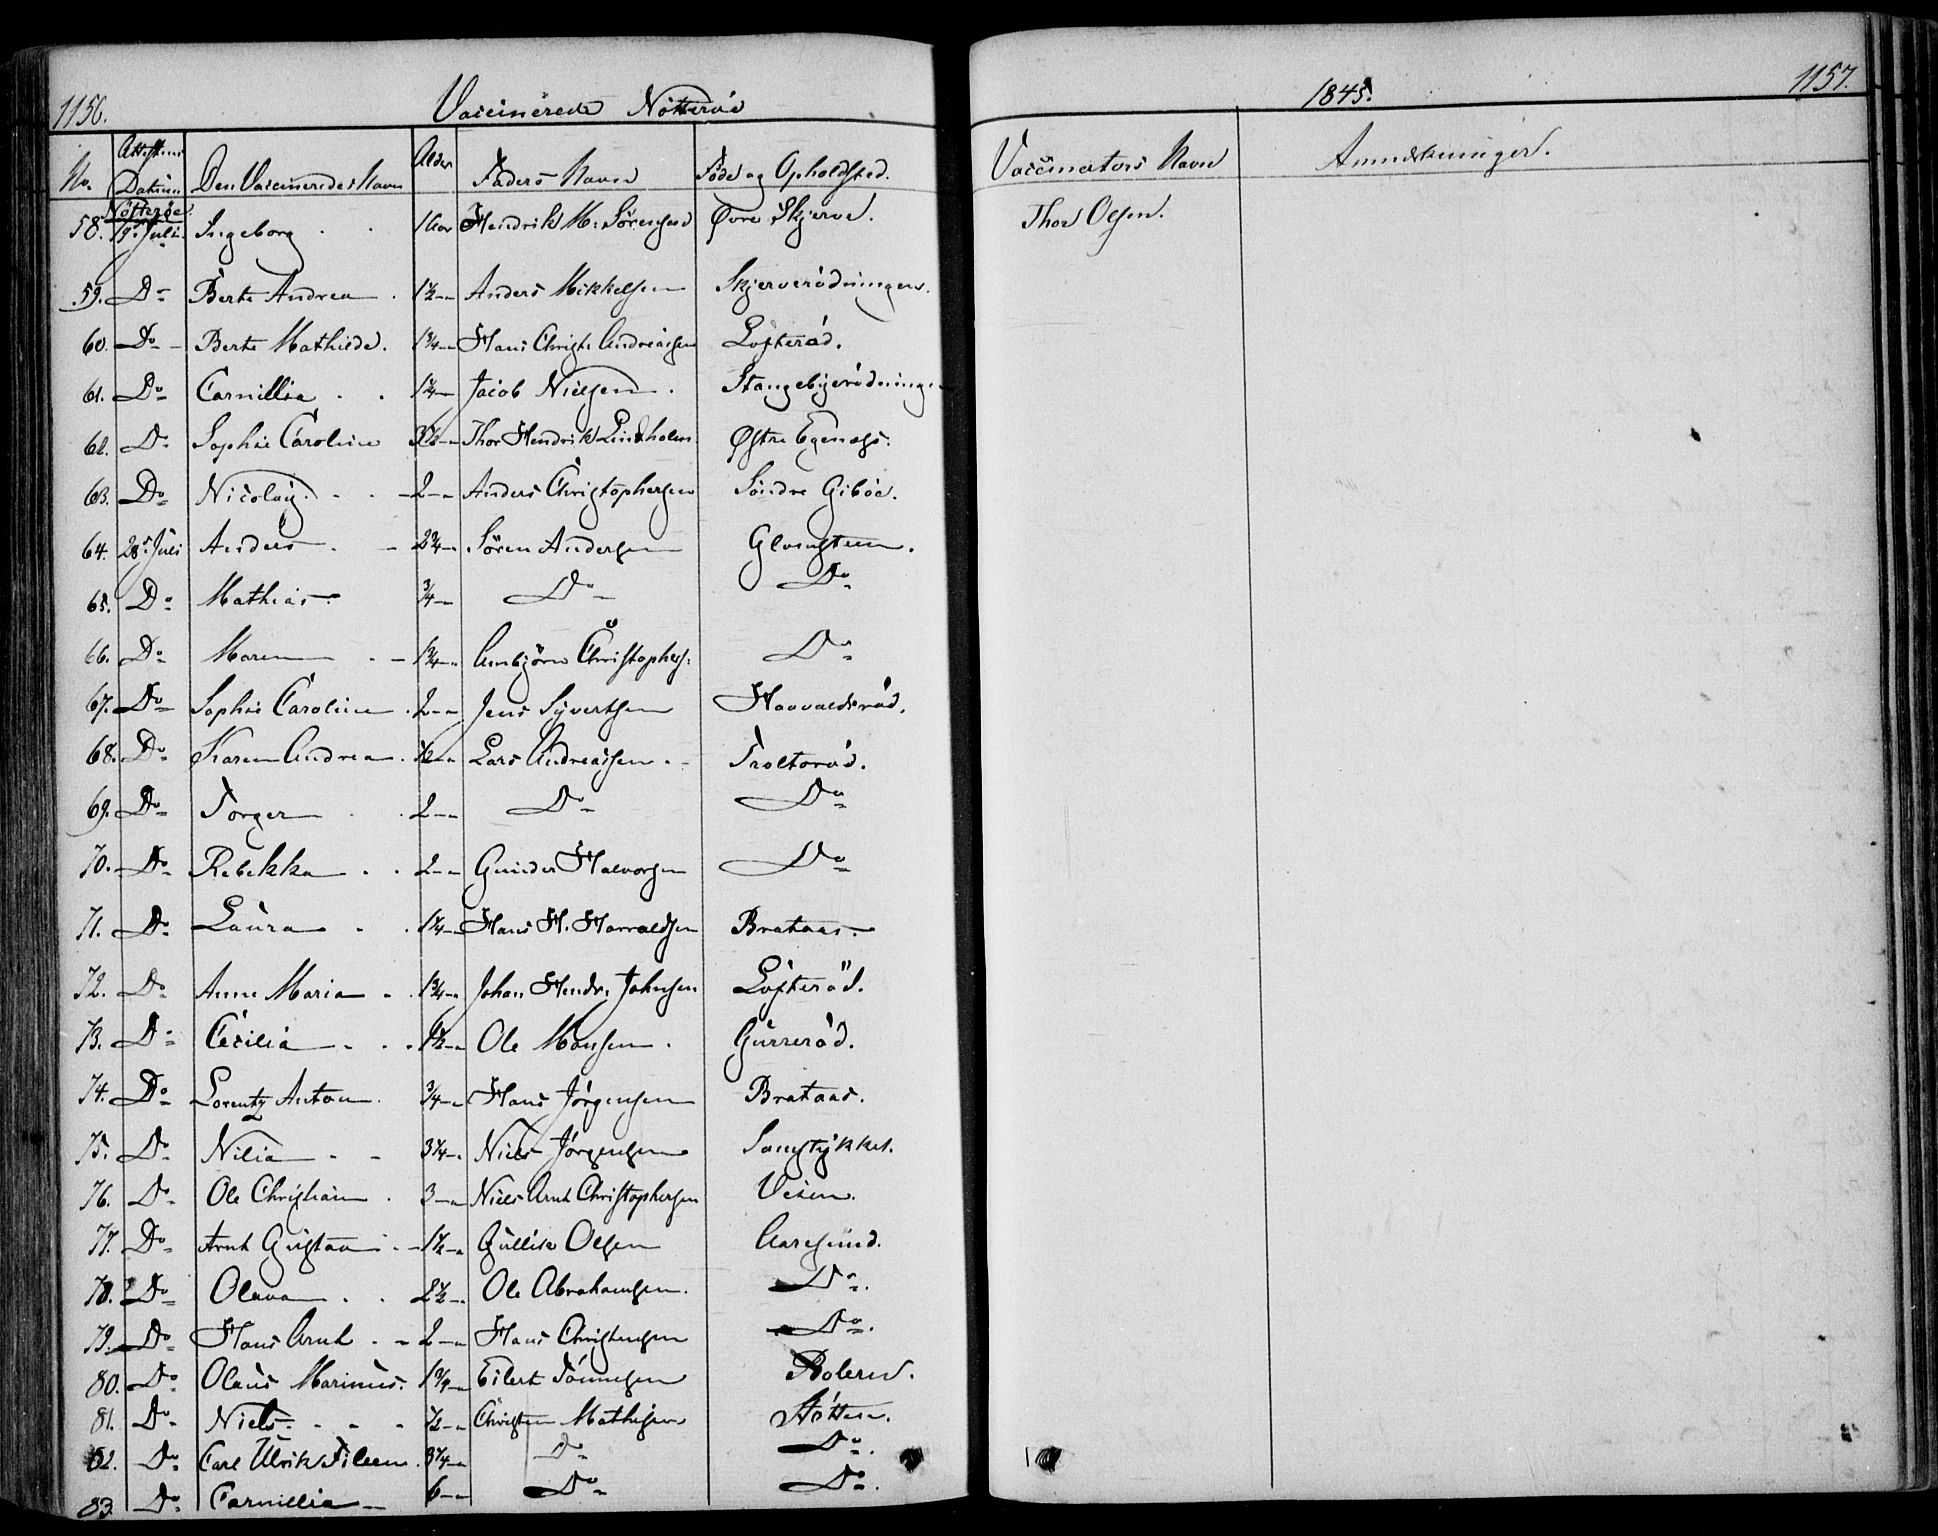 1156.
Vaccinerede Nötteröe
No. Attestens Datum Den Vaccineredes Navn Alder Faders Navn Föde og Opholdsted.
Nötteröe
58. 19. Juli Ingeborg 1 Aar Hendrik M. Sörensen Øvre Skjerve.
59. Do Berte Andrea 1½ Anders Mikkelsen Skjerverödningen.
60. Do Berte Mathilde. 1¾ Hans Christ. Andreassen Lofteröd.
61. Do Carnillia 1¼ Jacob Nielsen Stangebyerödninge
62. Do Sophie Caroline Thor Hendrik Lindholm Østre Egenæs.
63. Do Nicolay 2 Anders Christophersen Söndre Giböe.
64. 28. Juli Anders 2¾ Sören Andersen Glomsteen.
65. Do Mathias ¾ Do Do
66. Do Maren 1¾ Anbjörn Christophers: Do
67. Do Sophie Caroline 2 Jens Syvertsen Haavaldsröd.
68. Do Karen Andrea ½ Lars Andreassen Troltoröd.
69. Do Torger 2 Do Do
70. Do Rebekka 2 Gunder Halvorsen Do
71. Do Laura 1¼ Hans H. Harraldsen Brataas.
72. Do Anne Maria 1¾ Johan Hendr. Johnsen Lofteröd.
73. Do Cecilia 1½ Ole Monsen Gurreröd.
74. Do Lorentz Anton ¾ Hans Jörgensen Brataas.
75. Do Nilia 3¼ Niels Jörgensen Sangstykket.
76. Do Ole Christian 3 Niels Arnt Christophersen Veien.
77. Do Arnt Gustav 1½ Gullik Olsen Aarøsund.
78. Do Olava 2½ Ole Abrahamsen. Do
79. Do Hans Arnt 2 Hans Christensen Do
80. Do Olaus Marinus. 1¾ Eilert Tönnesen Bolerne.
81. Do Niels ½ Christen Mathisen Støtten.
82. Do Carl Ulrik Fileen 3¼ Do Do
83. Do Carnillia 6 Do Do
1845.
1157.
Vaccinators Navn Anmærkninger.
Thor Olsen.